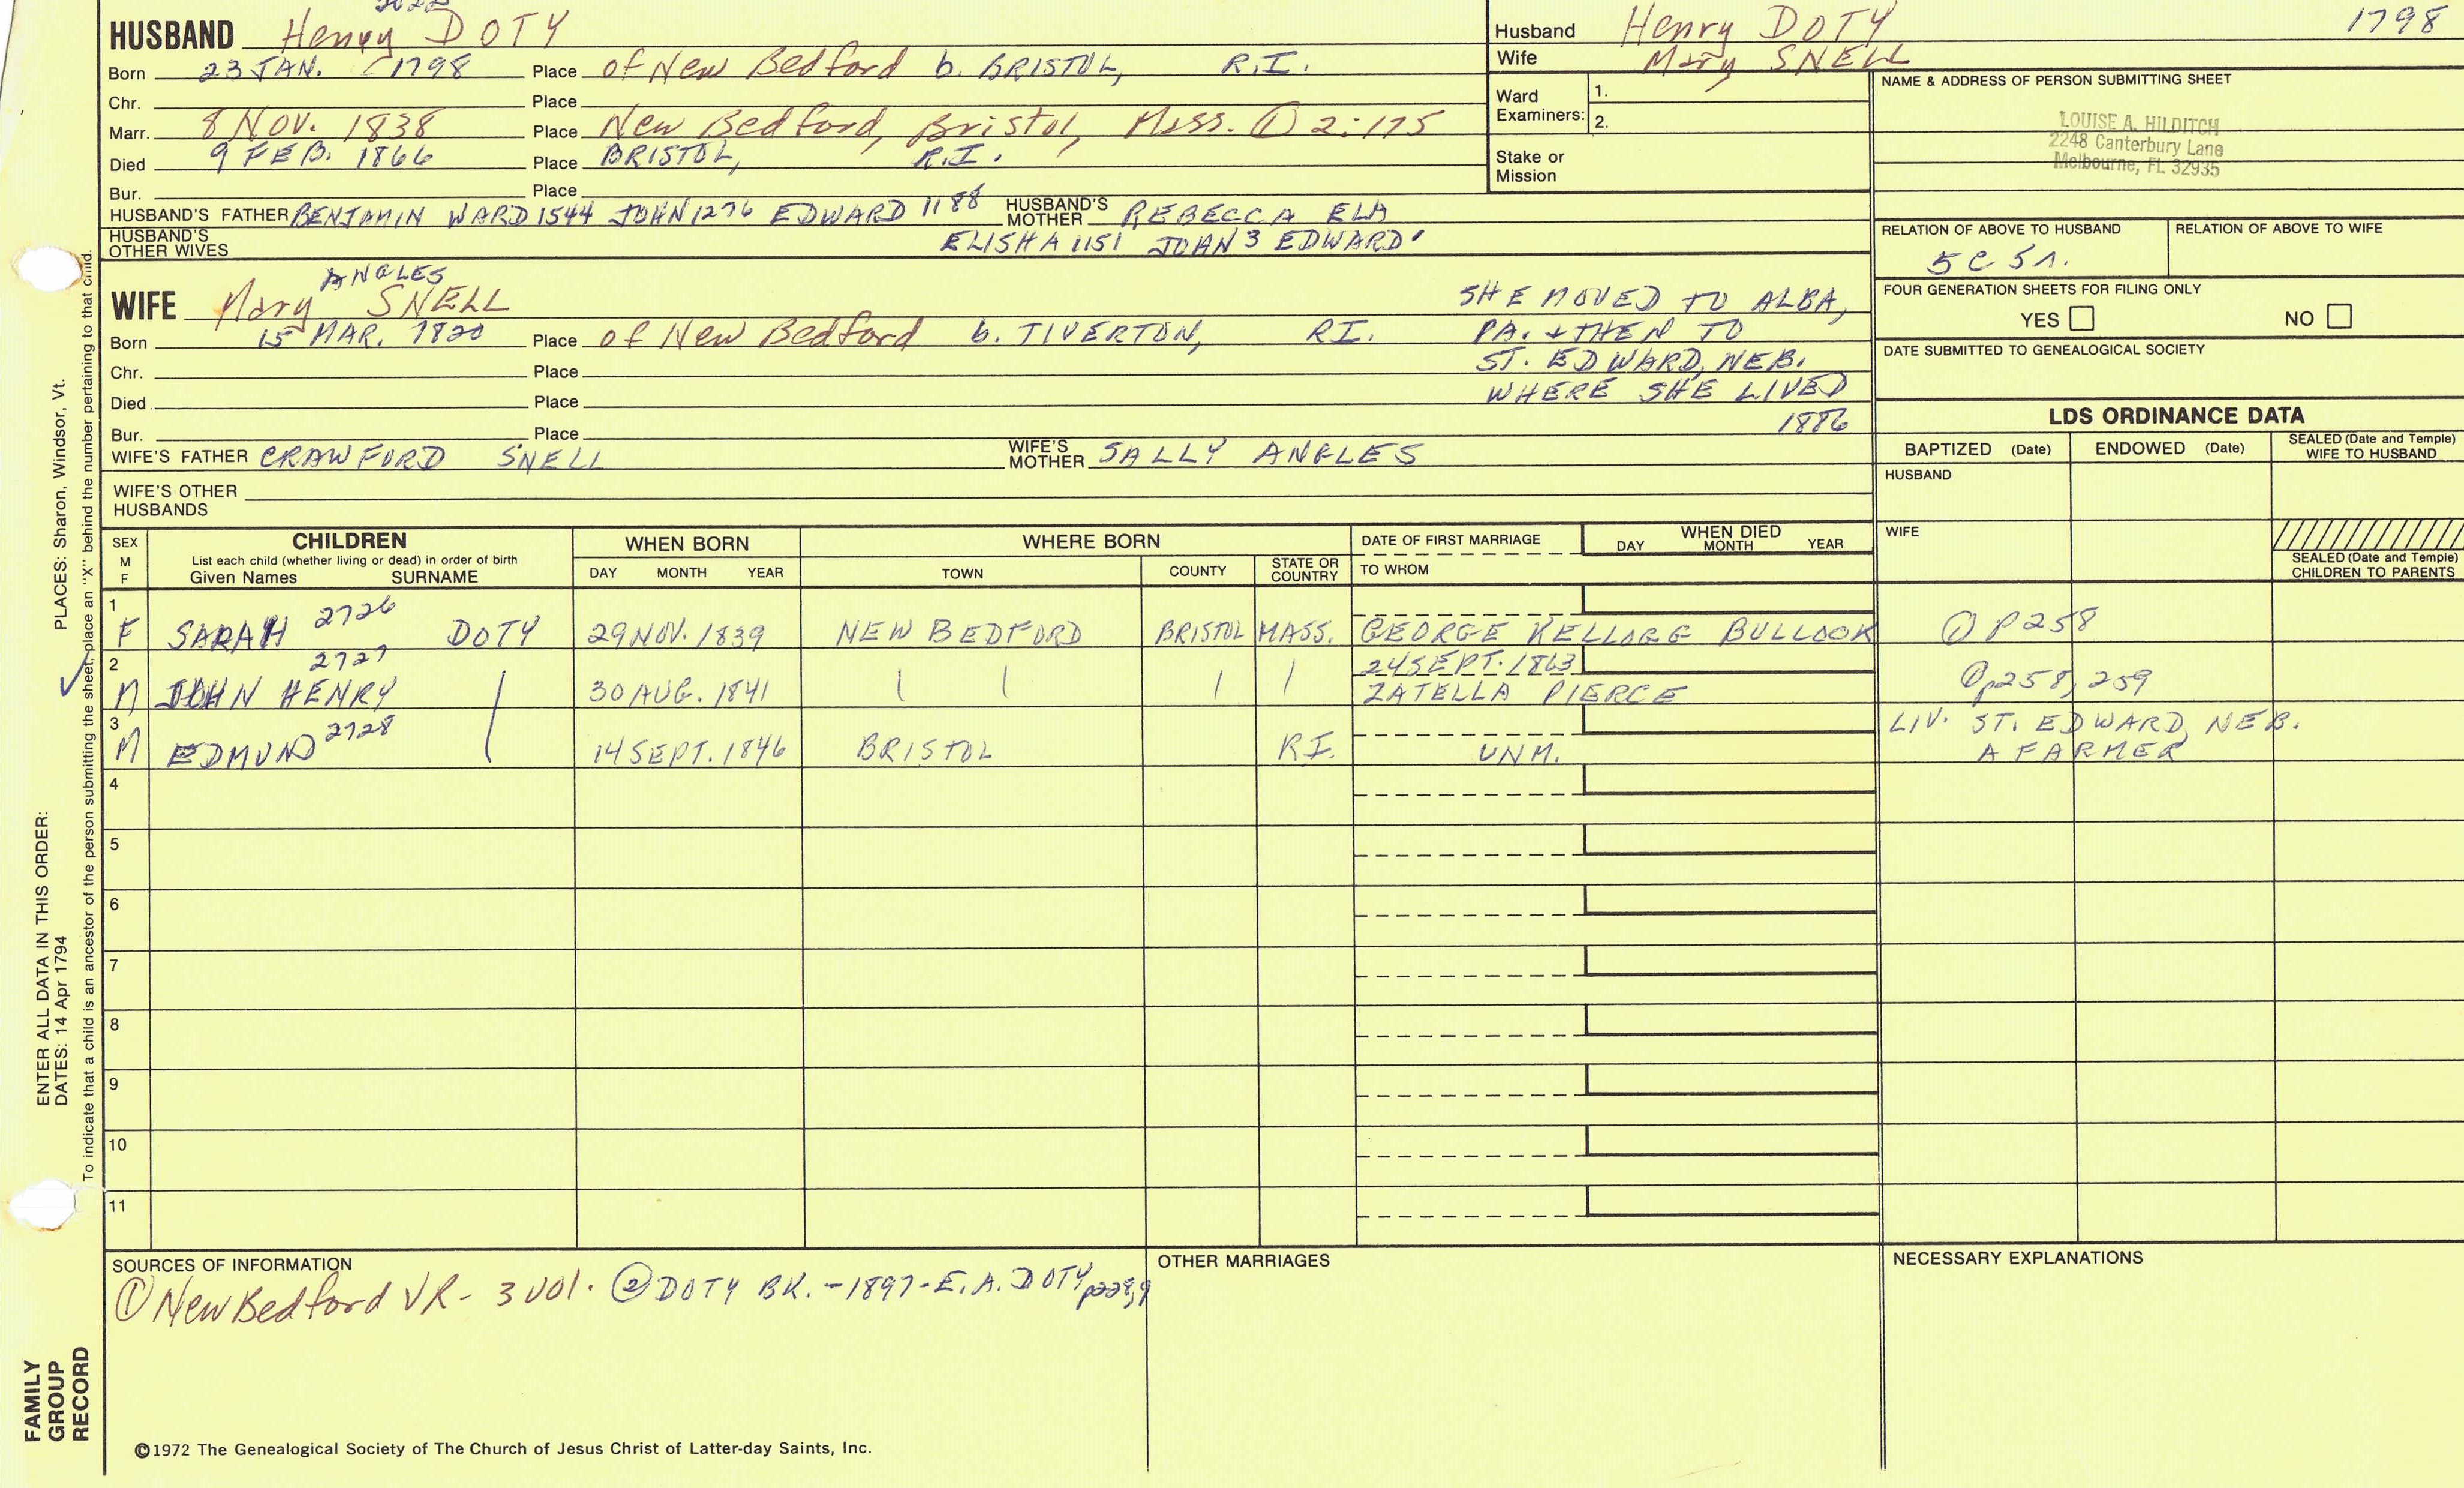 HUSBAND Henry DOTY
Born 23 JAN. 1798 Place of New Bedford b. BRISTOL, R.I.
Chr. Place
Marr. 8 NOV. 1838 Place New Bedford, Bristol, Mass. ① 2:175
Died 9 FEB. 1866 Place BRISTOL, R.I.
Bur. Place
HUSBAND'S FATHER BENJAMIN WARD 1544 JOHN 1276 EDWARD 1188 HUSBAND'S MOTHER REBECCA ELA
HUSBAND'S OTHER WIVES ELISHA 1151 JOHN 3 EDWARD
Husband Henry DOTY 1798
Wife Mary SNELL
Ward Examiners: 1.
2.
Stake or Mission
NAME & ADDRESS OF PERSON SUBMITTING SHEET
LOUISE A. HILDITCH
2248 Canterbury Lane
Melbourne, FL 32935
RELATION OF ABOVE TO HUSBAND RELATION OF ABOVE TO WIFE
5C 5R.
FOUR GENERATION SHEETS FOR FILING ONLY
YES NO
DATE SUBMITTED TO GENEALOGICAL SOCIETY
ANGLES
WIFE Mary SNELL
Born 15 MAR. 1820 Place of New Bedford b. TIVERTON, R.I.
Chr. Place
Died Place
Bur. Place
SHE MOVED TO ALBA,
PA. & THEN TO
ST. EDWARD, NEB.
WHERE SHE LIVED
1886
WIFE'S FATHER CRAWFORD SNELL WIFE'S MOTHER SALLY ANGLES
WIFE'S OTHER HUSBANDS
LDS ORDINANCE DATA
BAPTIZED (Date) ENDOWED (Date) SEALED (Date and Temple) WIFE TO HUSBAND
HUSBAND
WIFE
SEALED (Date and Temple) CHILDREN TO PARENTS
SEX M F CHILDREN List each child (whether living or dead) in order of birth Given Names SURNAME
WHEN BORN DAY MONTH YEAR
WHERE BORN TOWN COUNTY STATE OR COUNTRY
DATE OF FIRST MARRIAGE TO WHOM
WHEN DIED DAY MONTH YEAR
1 F SARAH 2726 DOTY 29 NOV. 1839 NEW BEDFORD BRISTOL MASS. GEORGE KELLOGG BULLOCK ① P258
2 M JOHN HENRY 2727 30 AUG. 1841 24 SEPT. 1863 ZATELLA PIERCE ① p258, 259
3 M EDMUND 2728 14 SEPT. 1846 BRISTOL R.I. UNM. LIV. ST. EDWARD, NEB. A FARMER
4
5
6
7
8
9
10
11
SOURCES OF INFORMATION
① New Bedford VR - 3 vol. ② DOTY BK. - 1897 - E.A. DOTY
OTHER MARRIAGES
NECESSARY EXPLANATIONS
©1972 The Genealogical Society of The Church of Jesus Christ of Latter-day Saints, Inc.
FAMILY GROUP RECORD
ENTER ALL DATA IN THIS ORDER:
DATES: 14 Apr 1794 PLACES: Sharon, Windsor, Vt.
To indicate that a child is an ancestor of the person submitting the sheet, place an "X" behind the number pertaining to that child.